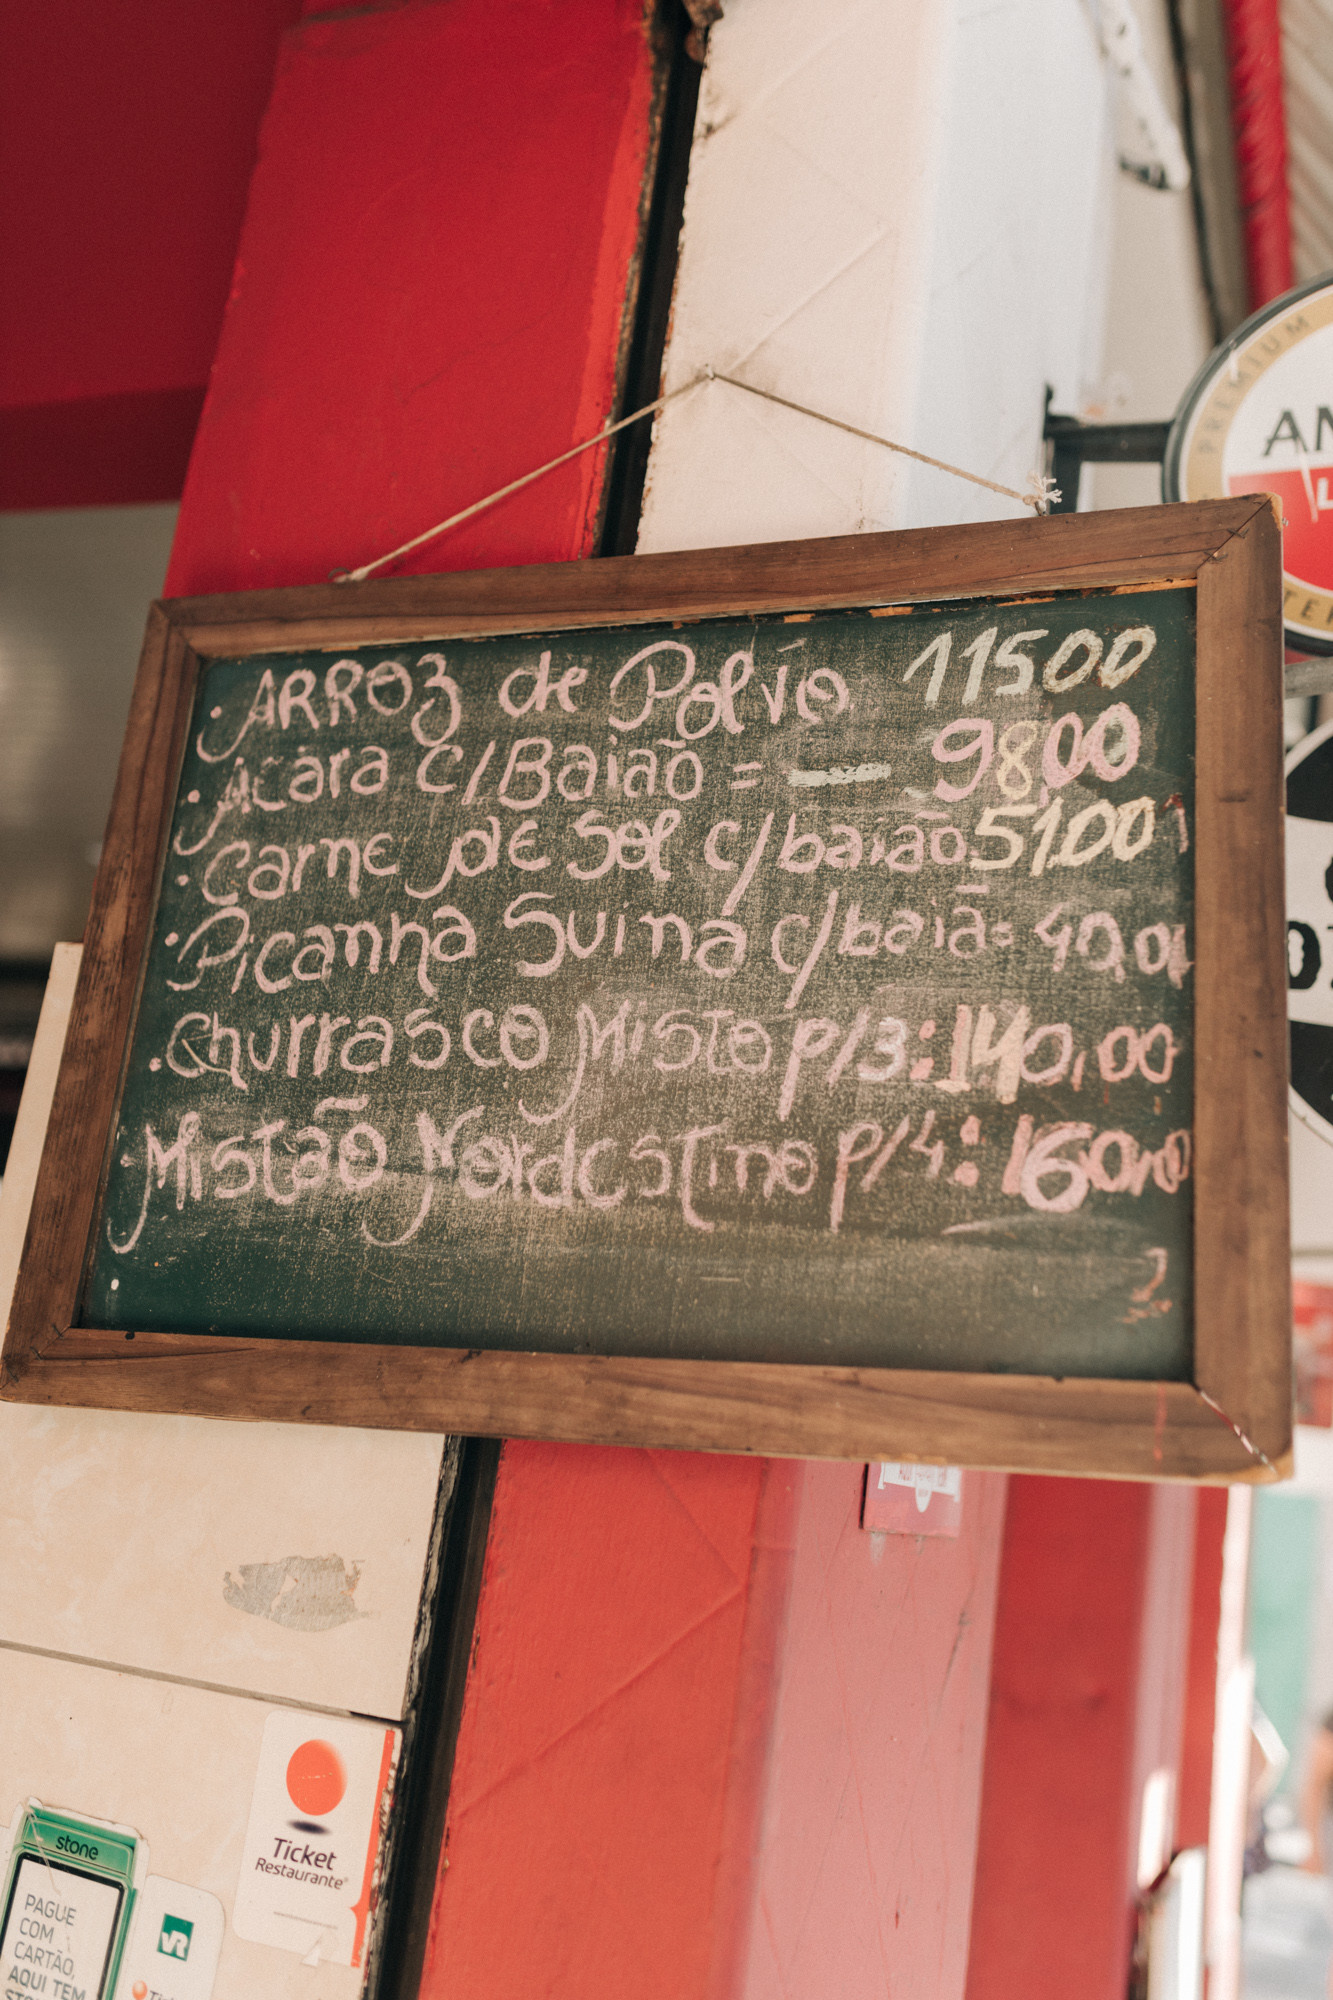 PREMIUM
AM
L
· ARROZ de Polvo 11500
· Acara c/Baião = 98,00
· Carne de Sol c/baião 51,00
· Picanha Suina c/baiã= 40,00
· Churrasco Misto p/3: 140,00
· Mistão Nordestino p/4: 160,00
Ticket
Restaurante
stone
PAGUE
COM
CARTÃO,
AQUI TEM
VR